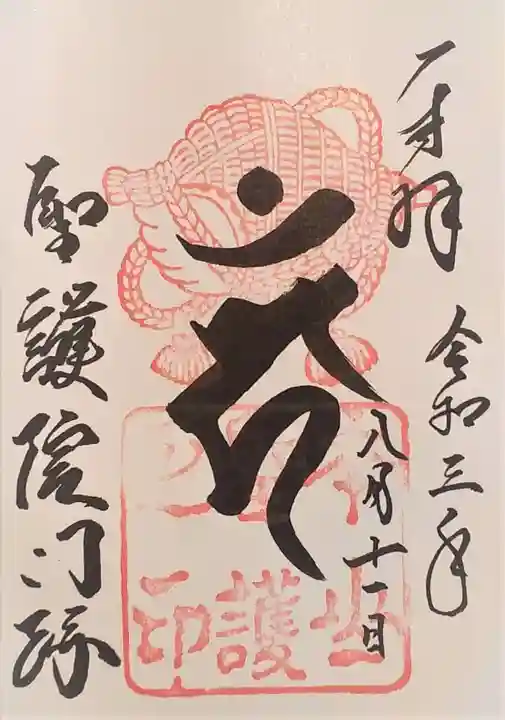 奉拝
令和三年
八月十一日
聖護院門跡